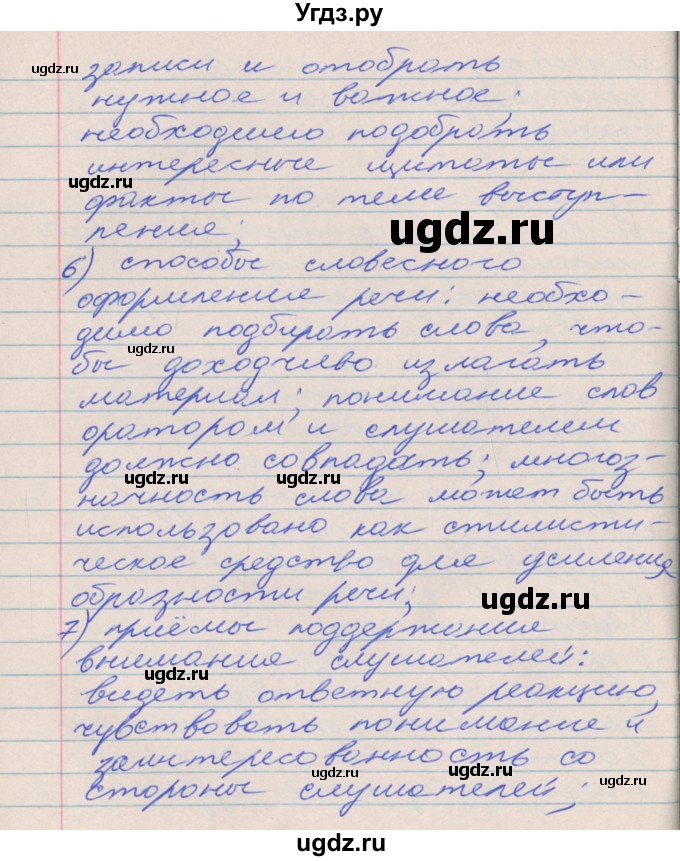 Угдз.ру
записи и отобрать
нужное и важное;
необходимо подобрать
интересные цитаты или
факты по теме выступ-
ления;
6) способы словесного
оформления речи: необхо-
димо подбирать слова, что-
бы доходчиво излагать
материал; понимание слов
оратором и слушателем
должно совпадать; многоз-
начность слова может быть
использовано как стилисти-
ческое средство для усиления
образности речи;
7) приёмы поддержания
внимания слушателей:
видеть ответную реакцию,
чувствовать понимание и
заинтересованность со
стороны слушателей;
ugdz.ru
ugdz.ru
ugdz.ru
ugdz.ru
ugdz.ru
ugdz.ru
ugdz.ru
ugdz.ru
ugdz.ru
ugdz.ru
ugdz.ru
ugdz.ru
ugdz.ru
ugdz.ru